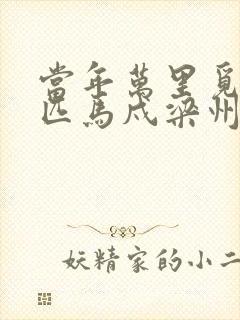 當年萬里覓
匹馬戍梁州
妖精家的小二